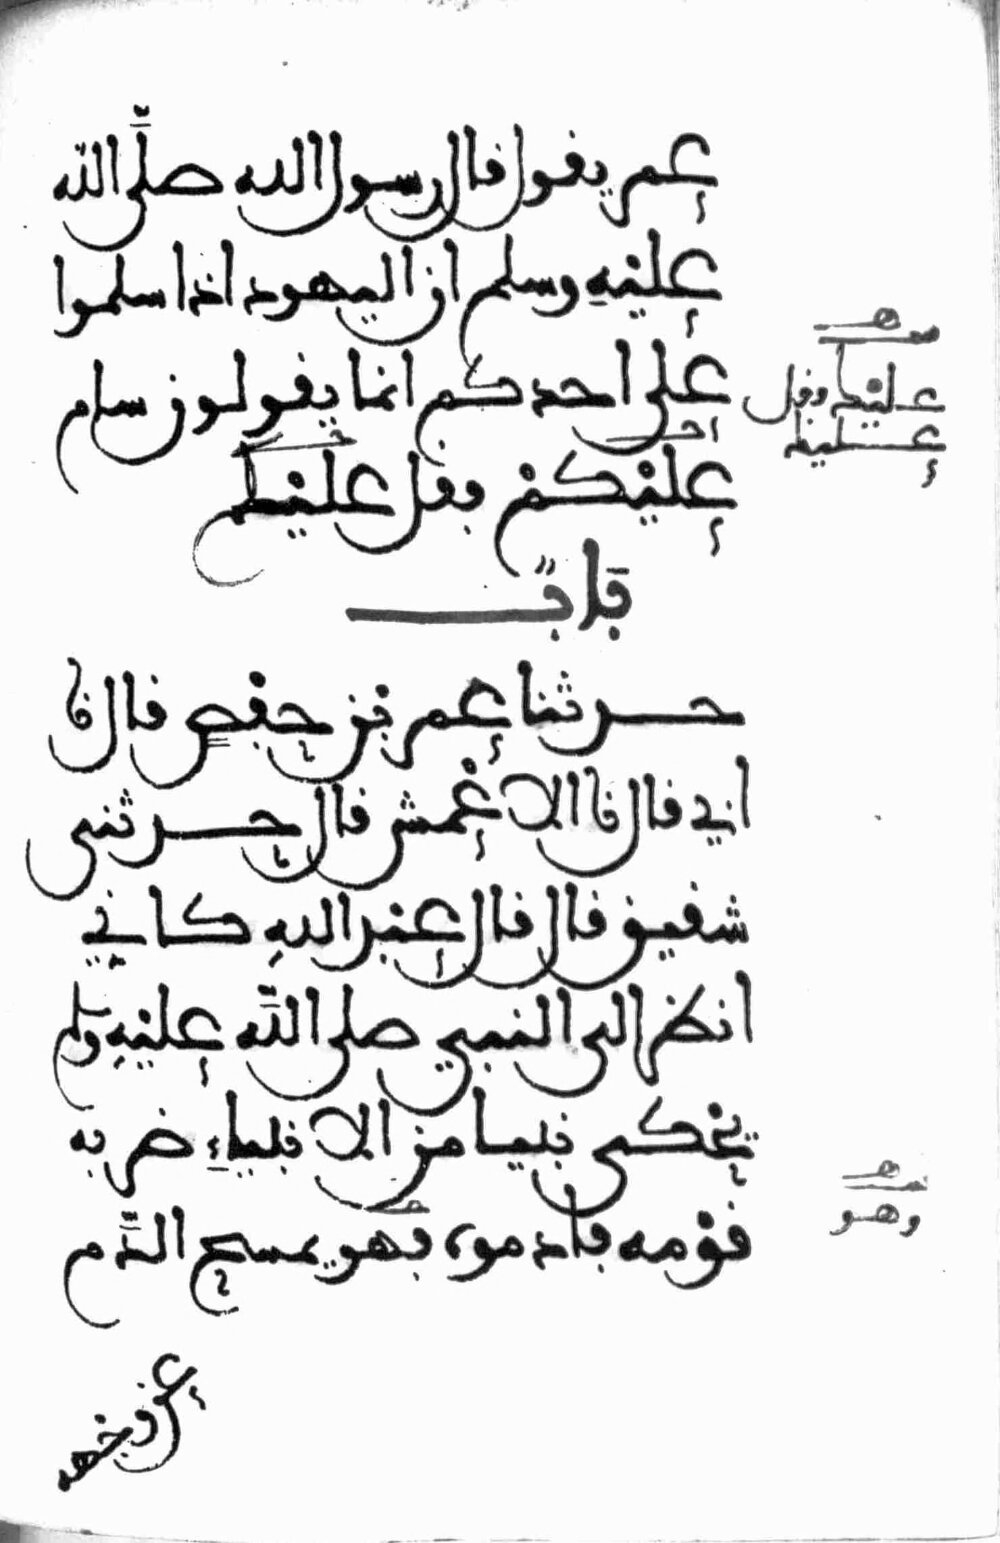 عمر يقول قال رسول الله صلى الله
عليه وسلم ان اليهود اذا سلموا
على احدكم انما يقولون سام
عليكم فقل عليكم
باب
حدثنا عمر بن حفص قال نا
ابي قال نا الاعمش قال حدثني
شقيق قال قال عبد الله كاني
انظر الى النبي صلى الله عليه وسلم
يحكي نبيا من الانبياء ضربه
قومه فادموه فهو يمسح الدم
عن وجهه
عليك فقل
عليك
وهو